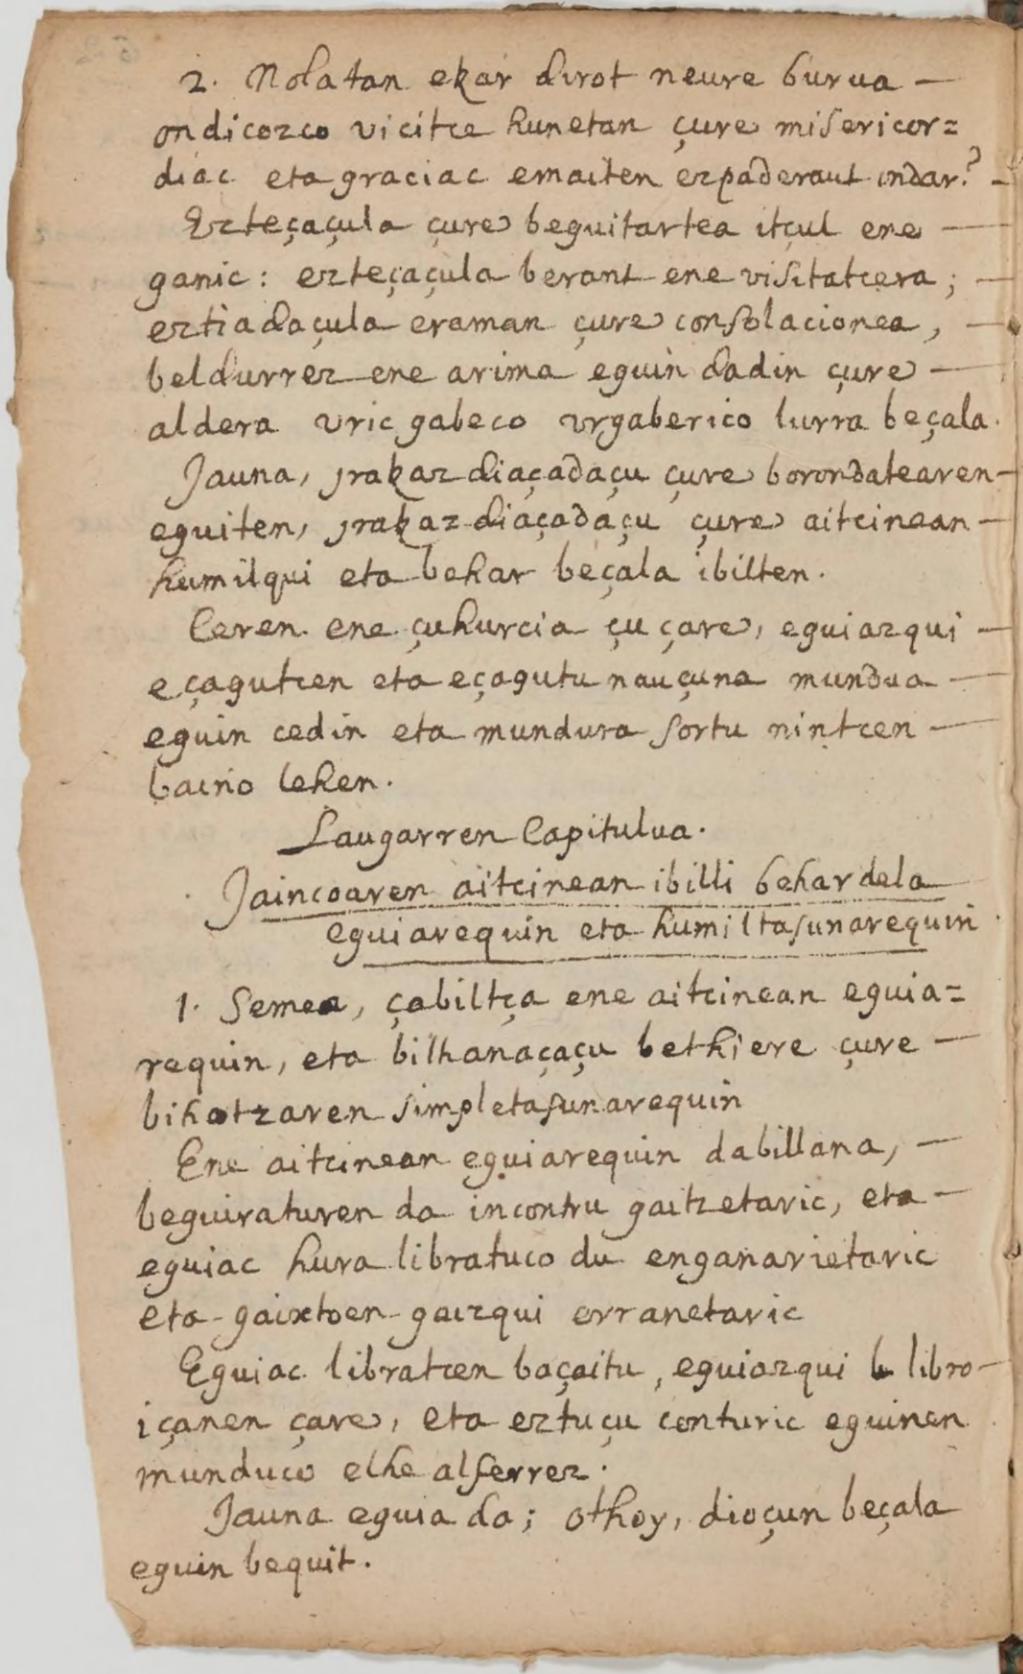 2. Nolatan ekar dirot neure burua —
ondicozco vicitce hunetan çure misericor=
diac eta graciac emaiten ezpaderaut indar? -
Ezteçaçula çure beguitartea itçul ene —
ganic: ezteçaçula berant ene visitatcera; —
eztiadaçula eraman çure consolacionea, —
beldurrez ene arima eguin dadin çure —
aldera uric gabeco urgaberico lurra beçala.
Jauna, jrakaz diaçadaçu çure borondatearen —
eguiten, jrakaz diaçadaçu çure aitcinean —
humilqui eta behar beçala ibilten.
Ceren ene çuhurcia çu çare, eguiazqui —
eçagutcen eta eçagutu nauçuna mundua —
eguin cedin eta mundura sortu nintcen —
baino lehen.
Laugarren Capitulua.
Jaincoaren aitcinean ibilli behar dela
eguiarequin eta humiltasunarequin
1. Semea, çabiltça ene aitcinean eguia=
requin, eta bilhanaçaçu bethiere çure —
bihotzaren simpletasunarequin
Ene aitcinean eguiarequin dabillana, —
beguiraturen da incontru gaitzetaric, eta —
eguiac hura libratuco du enganarietaric
eta gaixtoen gaizqui erranetaric
Eguiac libratcen baçaitu, eguiazqui libro —
içanen çare, eta eztuçu conturic eguinen
munduco elhe alferrez.
Jauna eguia da; othoy, dioçun beçala
eguin bequit.